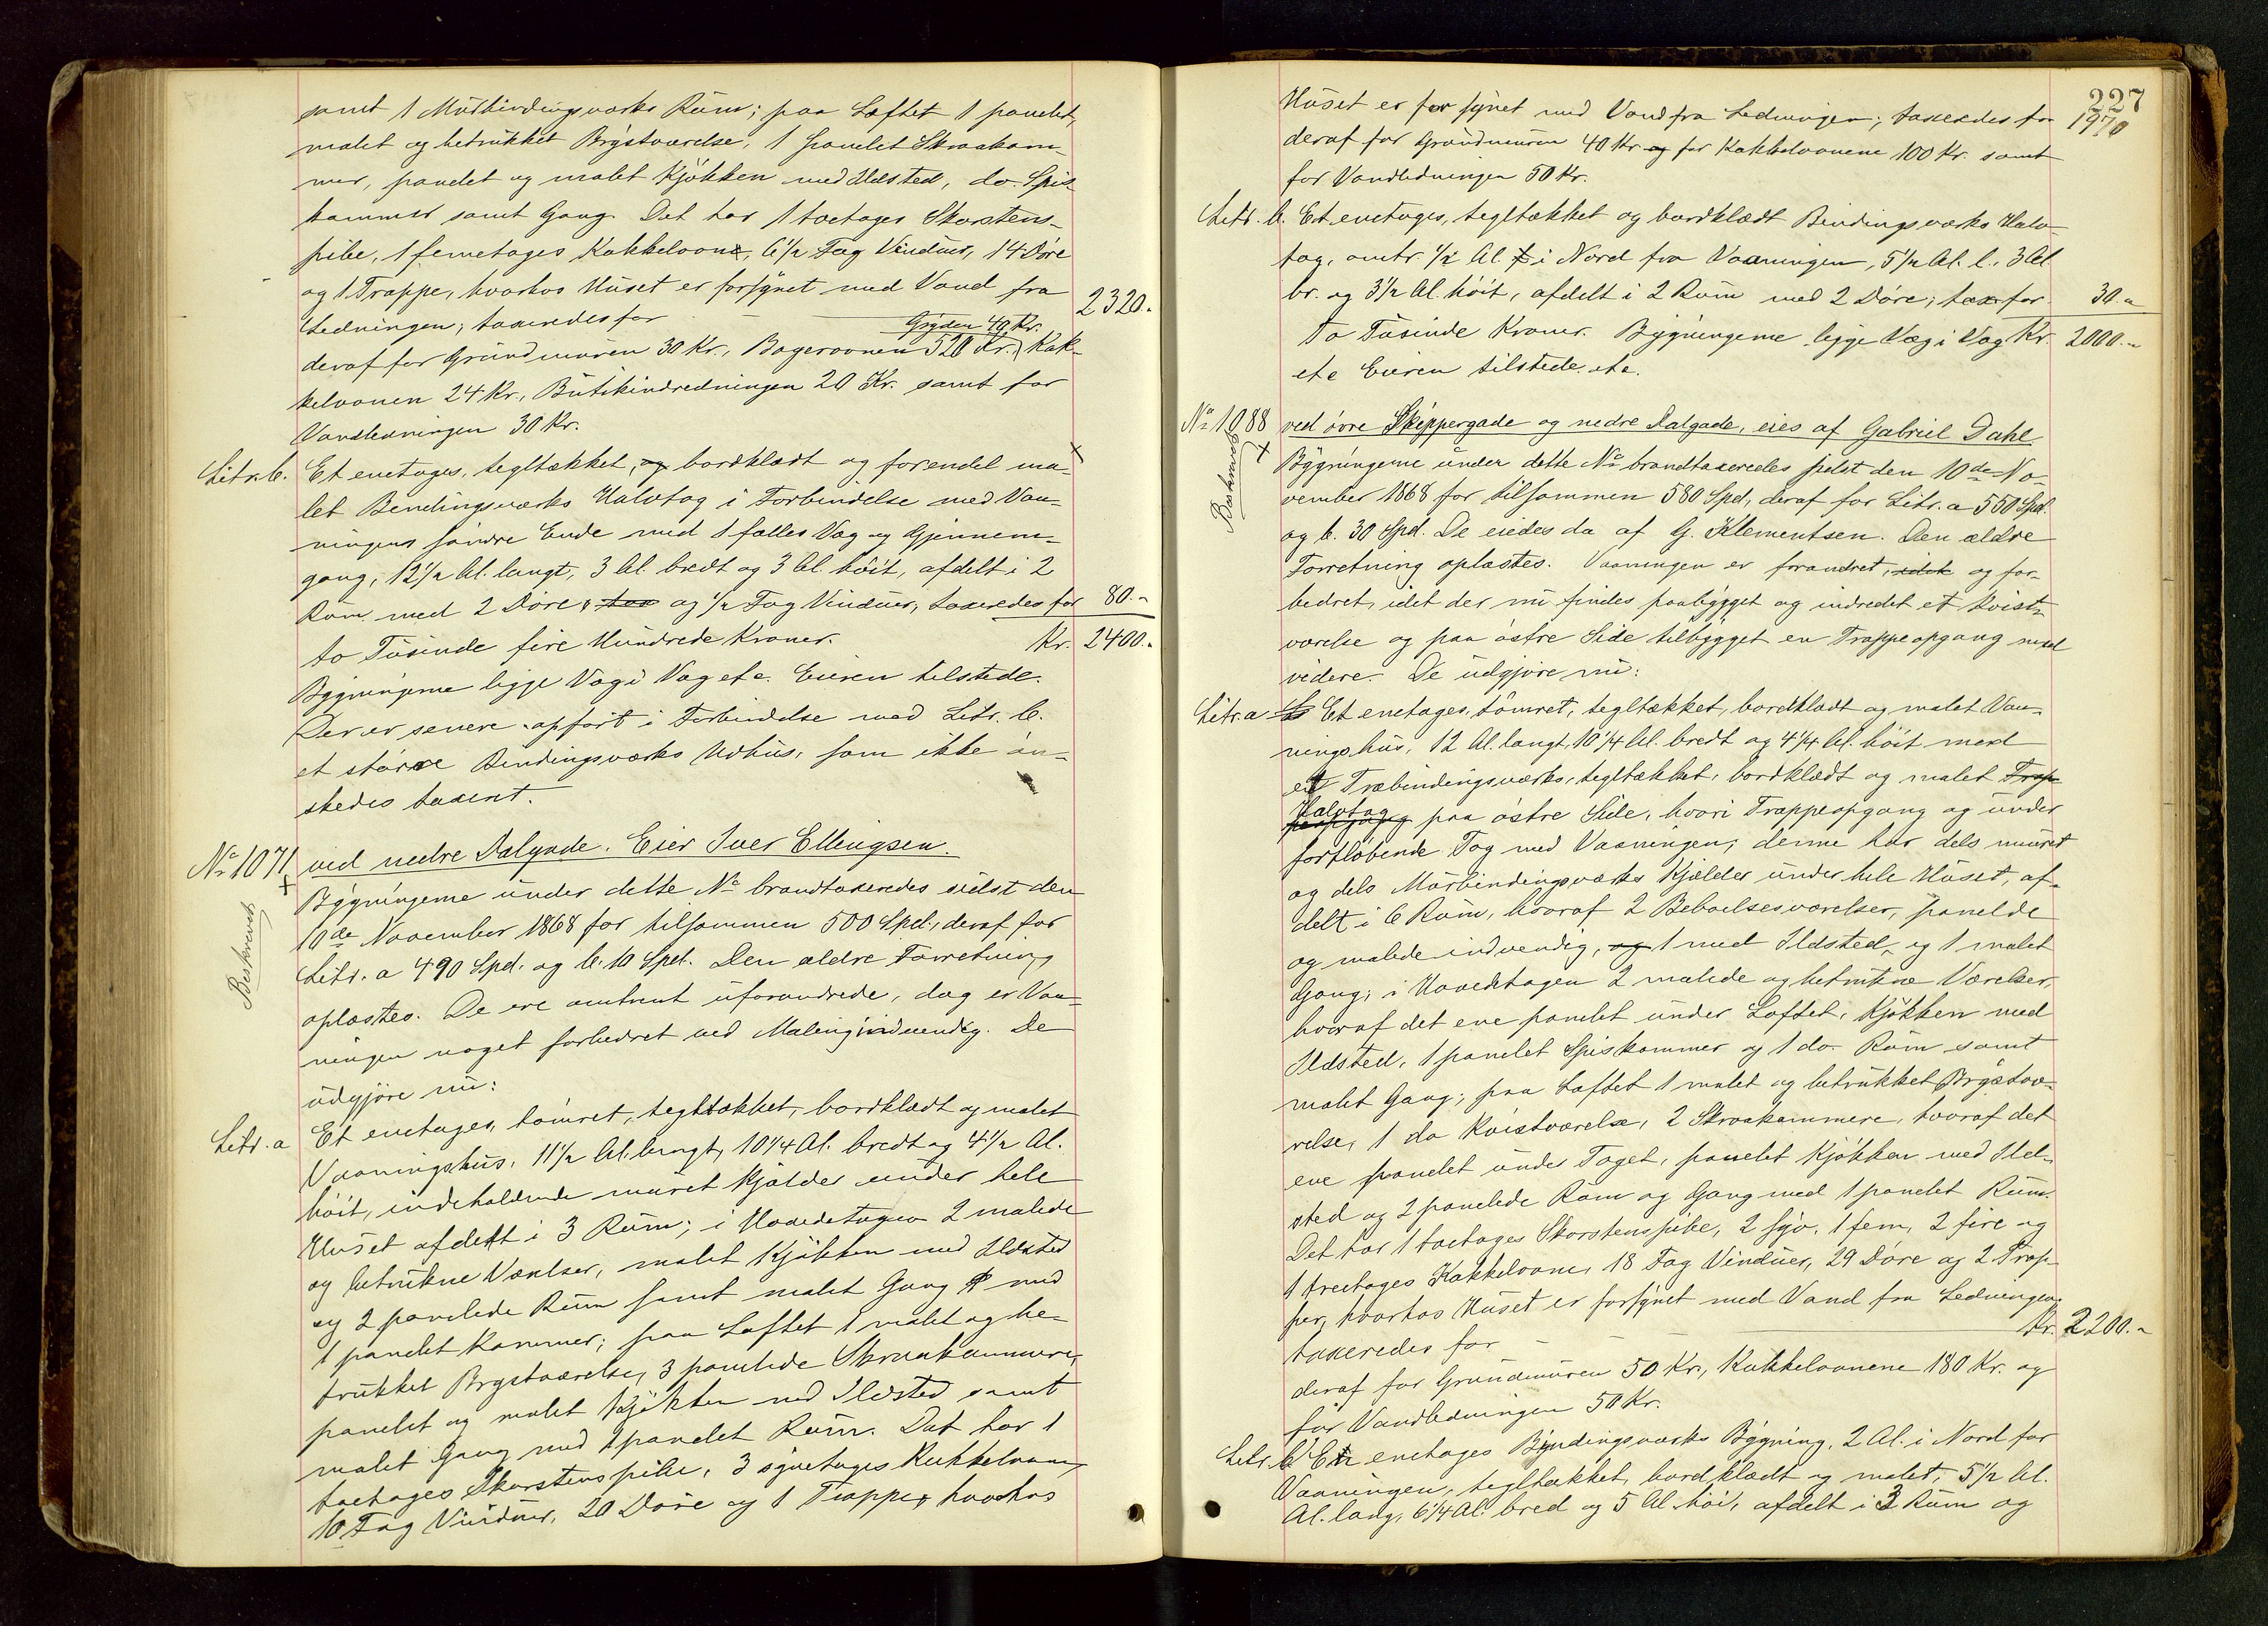 samt 1 Mürbindingsværks Rüm; paa Loftet 1 panelet,
malet og betrükket Brÿstværelse, 1 panelet Skraakam-
mer, panelet og malet Kjökken med Ildsted, do. Spis-
kammer samt Gang. Det har 1 toetages Skorstens-
pibe, 1 femetages Kakkelovn, 6 1/2 Fag Vindüer, 14 Döre
og 1 Trappe, hvorhos Hüset er forsÿnet med Vand fra
Ledningen; taxeredes for 2320.-
Grÿden 40 Kr.
deraf for Gründmüren 30 Kr., Bagerovnen 520 Kr., Kak-
kelovnen 24 Kr., Bütikindredningen 20 Kr. samt for
Vandledningen 30 Kr.
Litr. b. Et enetages, tegltækket, og bordklædt og forendel ma-
let Bindingsværks Halvtag i Forbindelse med Vaa-
ningens söndre Ende med 1 fælles Væg og Gjennem-
gang, 12 1/2 Al. langt, 3 Al. bredt og 3 Al. höit, afdelt i 2
Rüm med 2 Döre, tax og 1/2 Fag Vindüer, taxeredes for 80.-
to Tüsinde fire Hündrede Kroner. Kr. 2400.-
Bÿgningerne ligge Væg i Væg etc. Eieren tilstede.
Der er senere opfört i Forbindelse med Litr. b.
et större Bindingsværks Udhüs, som ikke ön-
skedes taxeret.
No 1071 ved nedre Dalgade. Eier Iver Ellingsen.
Bÿgningerne ünder dette No brandtaxeredes sidst den
Beskrevet
10de November 1868 for tilsammen 500 Spd., deraf for
Litr. a 490 Spd. og b. 10 Spd. Den ældre Forretning
oplæstes. De ere omtrent üforandrede, dog er Vaa-
ningen noget forbedret ved Maling indvendig. De
üdgjöre nü:
Litr. a Et enetages, tömret, tegltækket, bordklædt og malet
Vaaningshüs, 11 1/2 Al. langt, 10 1/4 Al. bredt og 4 1/2 Al.
höit, indeholdende müret Kjælder ünder hele
Hüset afdelt i 3 Rüm; i Hovedetagen 2 malede
og betrükne Værelser, malet Kjökken med Ildsted
og 2 panelede Rüm samt malet Gang med
1 panelet Kammer; paa Loftet 1 malet og be-
trükket Brystværelse, 3 panelede Skraakammere,
panelet og malet Kjökken med Ildsted samt
malet Gang med 1 panelet Rüm. Det har 1
toetages Skorstenspibe, 3 syvetages Kakkelovne,
10 Fag Vindüer, 20 Döre og 1 Trappe, hvorhos
227
Hüset er forsÿnet med Vand fra Ledningen; taxeredes for 1970
deraf for Gründmüren 40 Kr. og for Kakkelovnene 100 Kr. samt
for Vandledningen 50 Kr.
Litr. b. Et enetages, tegltækket og bordklædt Bindingsværks Halv-
tag, omtr. 1/2 Al. i Nord fra Vaaningen, 5 1/2 Al. l., 3 Al.
br. og 3 1/2 Al. höit, afdelt i 2 Rüm med 2 Döre; tax. for 30.-
To Tüsinde Kroner. Bÿgningerne ligge Væg i Væg Kr. 2000.-
etc Eieren tilstede etc.
No 1088 ved övre Skippergade og nedre Dalgade, eies af Gabriel Dahl
Bÿgningerne ünder dette No brandtaxeredes sidst den 10de No-
Beskrevet
vember 1868 for tilsammen 580 Spd, deraf for Litr. a 550 Spd.
og b. 30 Spd. De eiedes da af G. Klementsen. Den ældre
Forretning oplæstes. Vaaningen er forandret, idet og for-
bedret, idet der nü findes paabÿgget og indredet et Kvist-
værelse og paa östre Side tilbÿgget en Trappeopgang med
videre. De üdgjöre nü:
Litr. a Et enetages, tömret, tegltækket, bordklædt og malet Vaa-
ningshüs, 12 Al. langt, 10 1/4 Al. bredt og 4 1/4 Al. höit med
et Træbindingsværks, tegltækket, bordklædt og malet Trap
Halvtag
peopgang paa östre Side, hvori Trappeopgang og ünder
fortlöbende Tag med Vaaningen; denne har dels müret
og dels Mürbindingsværks Kjælder ünder hele Hüset, af-
delt i 6 Rüm, hvoraf 2 Beboelsesværelser, panelede
og malede indvendig, og 1 med Ildsted, og 1 malet
Gang; i Hovedetagen 2 malede og betrükne Værelser,
hvoraf det ene panelet ünder Loftet, Kjökken med
Ildsted, 1 panelet Spiskammer og 1 do. Rüm samt
malet Gang; paa Loftet 1 malet og betrükket Brÿstvæ-
relse, 1 do Kvistværelse, 2 Skraakammere, hvoraf det
ene panelet ünder Taget, panelet Kjökken med Ild-
sted og 2 panelede Rüm og Gang med 1 panelet Rüm.
Det har 1 toetages Skorstenspibe, 2 syv, 1 fem, 2 fire og
1 treetages Kakkelovne, 18 Fag Vindüer, 29 Döre og 2 Trap-
per, hvorhos Hüset er forsÿnet med Vand fra Ledningen;
taxeredes for Kr. 2200.-
deraf for Gründmüren 50 Kr., Kakkelovnene 180 Kr. og
for Vandledningen 50 Kr.
Litr. b. En enetages Bindingsværks Bÿgning, 2 Al. i Nord for
Vaaningen, tegltækket, bordklædt og malet, 5 1/2 Al.
Al. lang, 6 1/4 Al. bred og 5 Al. höi, afdelt i 3 Rüm og